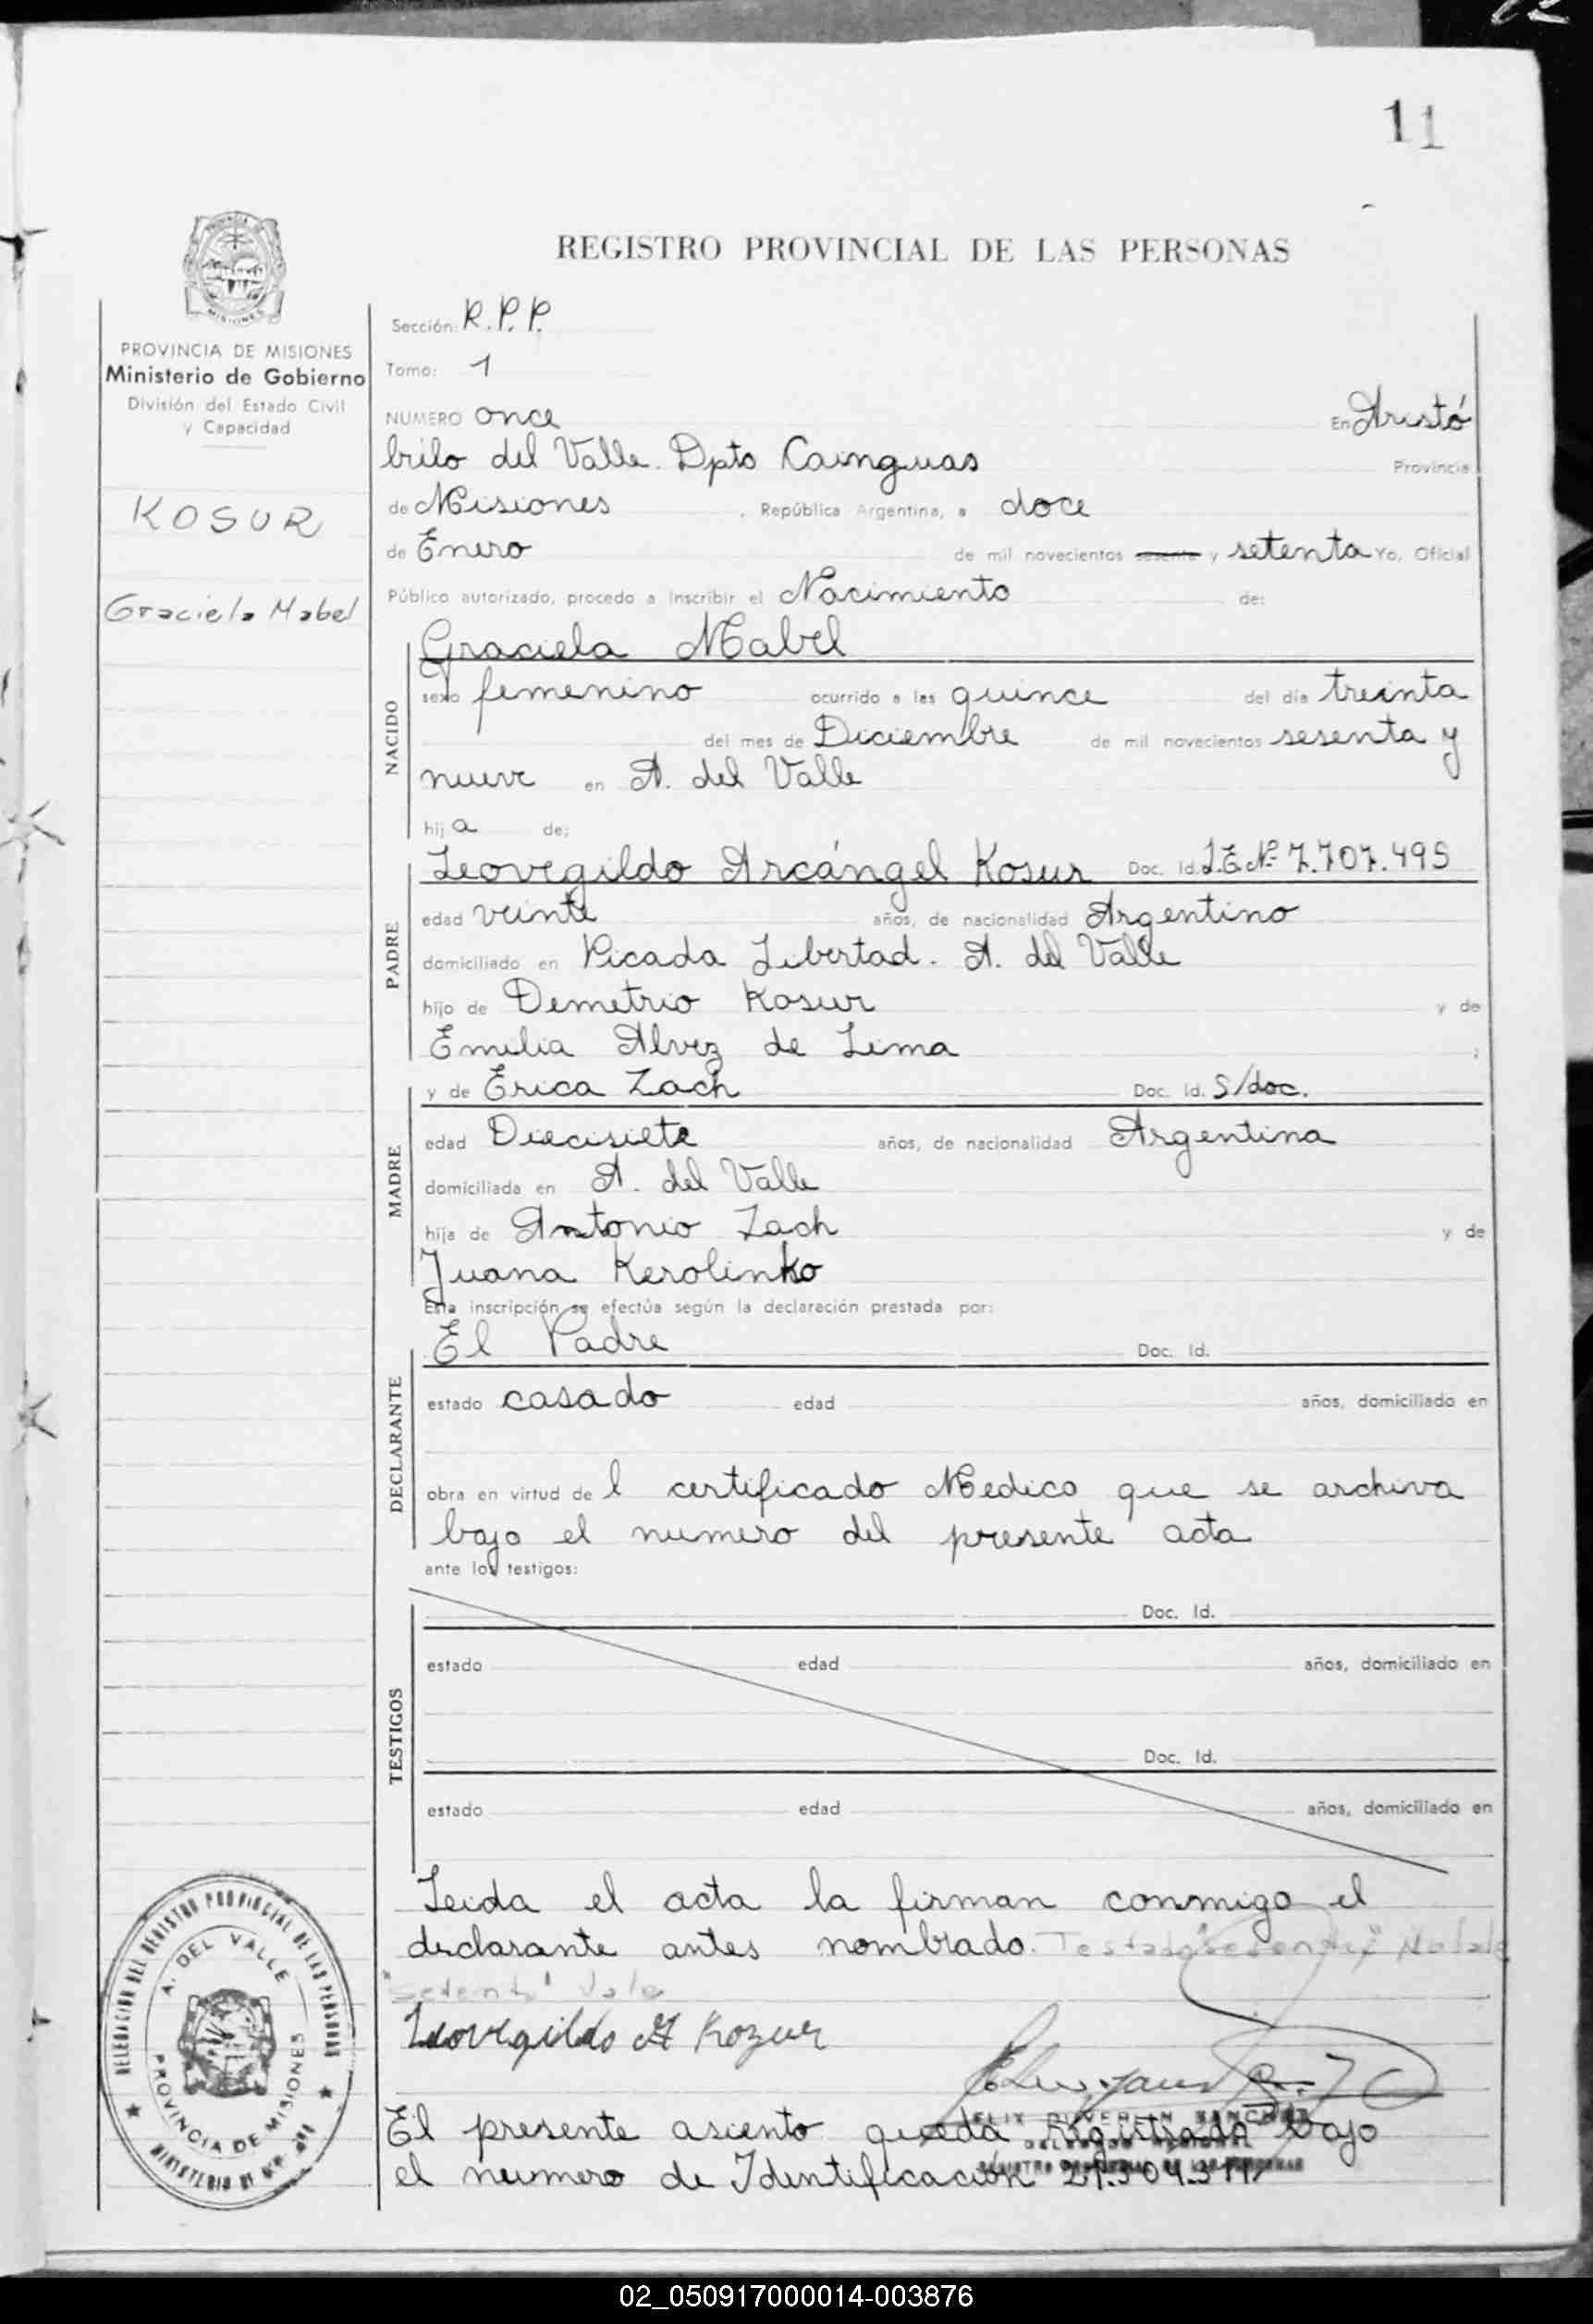 11
REGISTRO PROVINCIAL DE LAS PERSONAS
PROVINCIA DE MISIONES
Ministerio de Gobierno
División del Estado Civil
y Capacidad
KOSUR
Graciela Mabel
Sección: R.P.P.
Tomo: 1
NUMERO once En Aristó
bulo del Valle. Dpto Cainguas Provincia
de Misiones , República Argentina, a doce
de Enero de mil novecientos sesenta y setenta Yo, Oficial
Público autorizado, procedo a inscribir el Nacimiento de:
NACIDO
Graciela Mabel
sexo femenino ocurrido a las quince del día treinta
del mes de Diciembre de mil novecientos sesenta y
nueve en A. del Valle
hij a de;
PADRE
Leovegildo Arcángel Kosur Doc. Id. L.E.Nº 7.707.495
edad veinte años, de nacionalidad Argentino
domiciliado en Picada Libertad. A. del Valle
hijo de Demetrio Kosur y de
Emilia Alvez de Lima ;
MADRE
y de Erica Zach Doc. Id. S/doc.
edad Diecisiete años, de nacionalidad Argentina
domiciliada en A. del Valle
hija de Antonio Zach y de
Juana Kerolinko
Esta inscripción se efectúa según la declaración prestada por:
DECLARANTE
El Padre Doc. Id.
estado casado edad años, domiciliado en
obra en virtud de l certificado Medico que se archiva
bajo el numero del presente acta
ante los testigos:
TESTIGOS
Doc. Id.
estado edad años, domiciliado en
Doc. Id.
estado edad años, domiciliado en
Leida el acta la firman conmigo el
declarante antes nombrado. Testado "sesenta y" No vale
"setenta" Vale
Leovegildo A Kozur
FELIX DUVERLIN SANCHEZ
DELEGADO REGIONAL
REGISTRO PROVINCIAL DE LAS PERSONAS
El presente asiento queda registrado bajo
el numero de Identificación
DELEGACION DEL REGISTRO PROVINCIAL DE LAS PERSONAS
A. DEL VALLE
PROVINCIA DE MISIONES
02_050917000014-003876